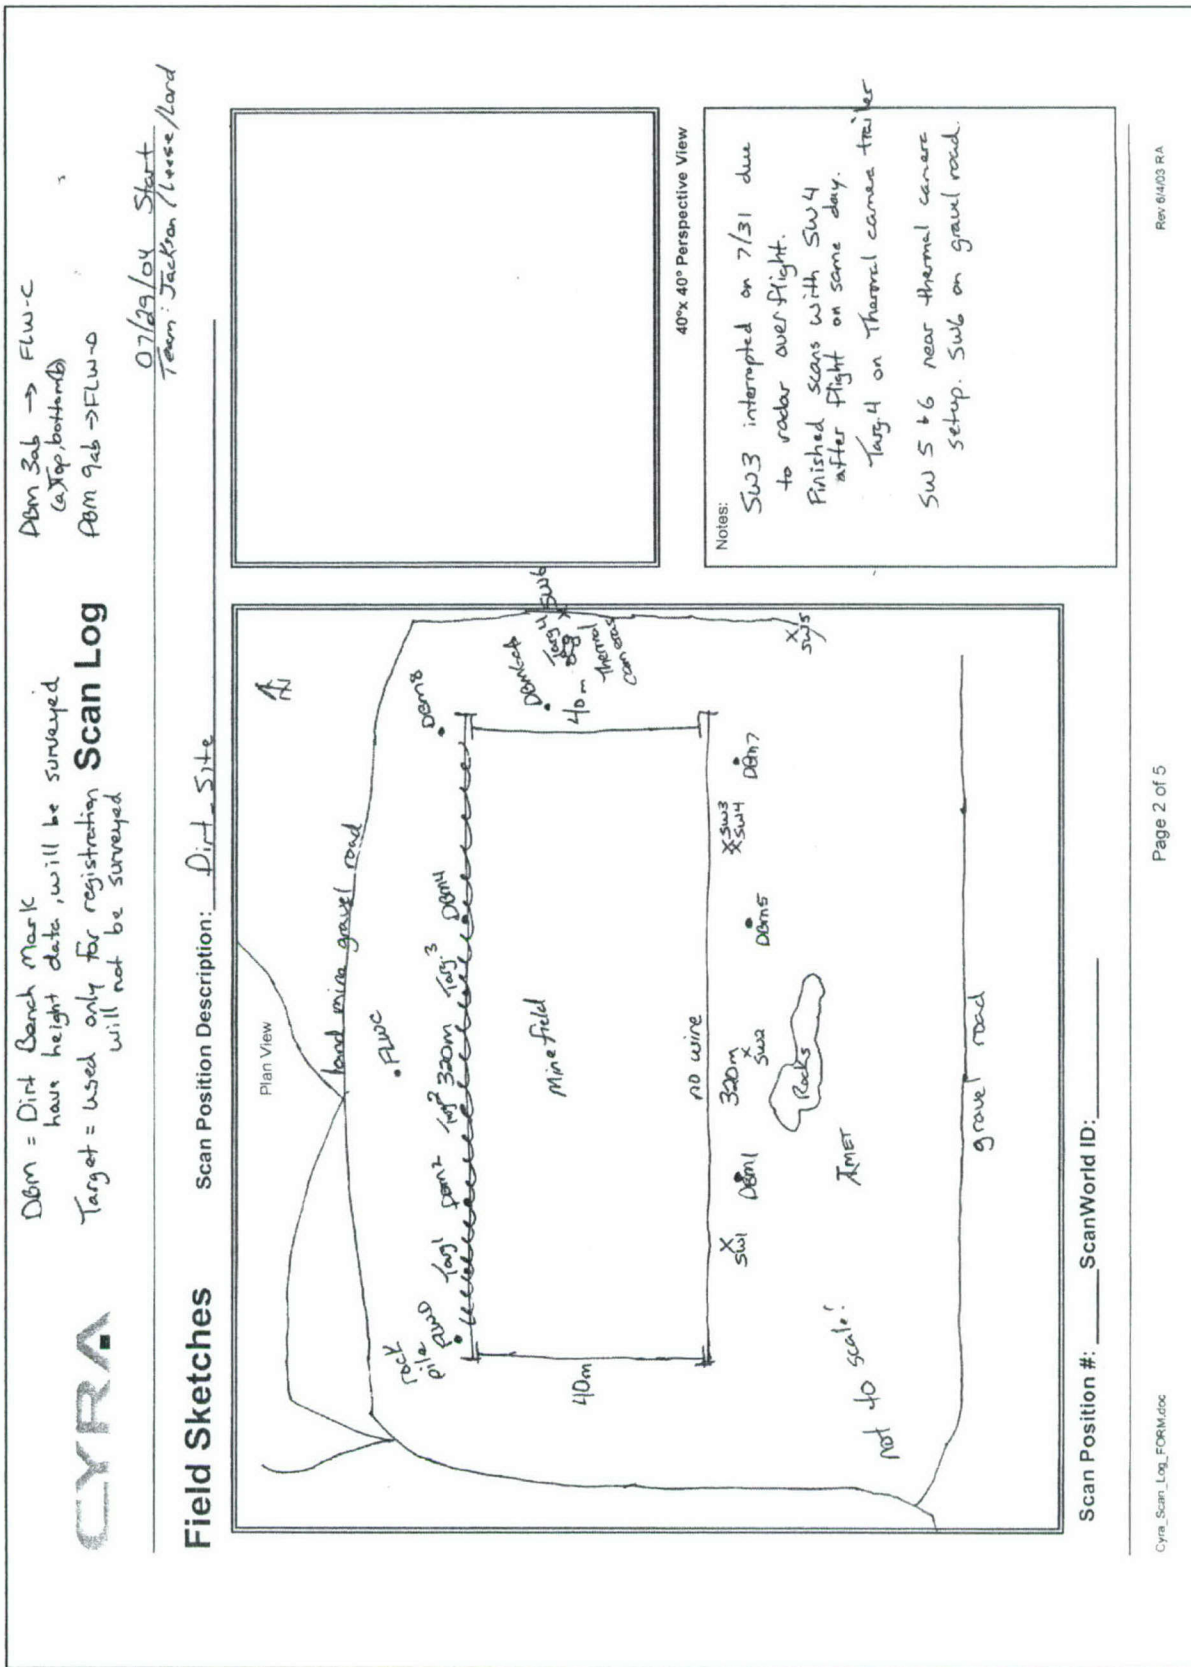 DBM = Dirt Bench Mark
have height data, will be surveyed
Target = used only for registration
will not be surveyed
DBM 3ab -> FLW-C
(a)Top, bottom(b)
DBM 9ab -> FLW-D
CYRA
Scan Log
07/29/04 Start
Team: Jackson / / Lord
Field Sketches
Scan Position Description: Dirt_Site
Plan View
N
land mine gravel road
FLWC
rock
pile
FLWD
Targ1
DBM2
Targ2
320m
Targ.3
DBM4
DBM8
40m
Minefield
40m
DBM6ab
Targ 4
SW6
Thermal
cameras
no wire
X
SW1
DBM1
320m
X
SW2
Rocks
DBM5
X SW3
X SW4
DBM7
X
SW5
MET
not to scale!
gravel road
40°x 40° Perspective View
Notes:
SW3 interrupted on 7/31 due
to radar overflight.
Finished scans with SW4
after flight on same day.
Targ.4 on Thermal camera trailer
SW 5 & 6 near thermal camera
setup. SW6 on gravel road.
Scan Position #: ______ ScanWorld ID: ______
Cyra_Scan_Log_FORM.doc
Page 2 of 5
Rev 6/4/03 RA